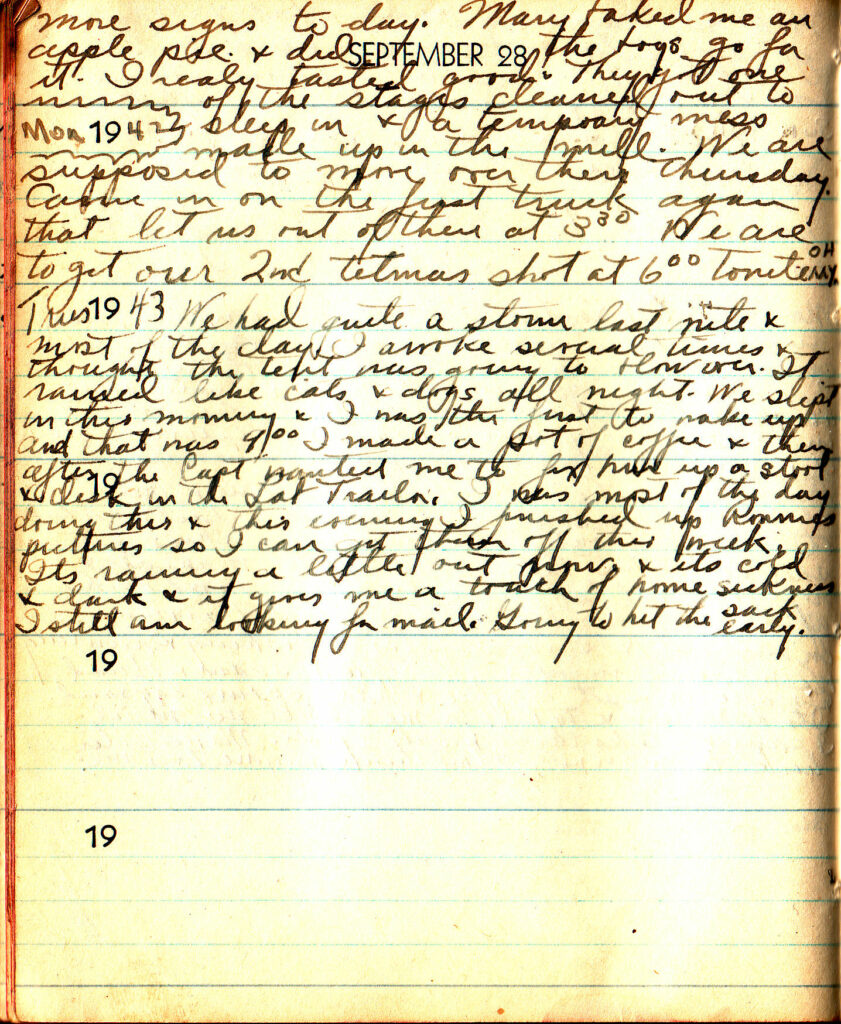 more signs to day. Mary baked me an
apple pie. & did the boys go for
SEPTEMBER 28
it. I realy tasted good. They got one
of the stages cleaned out to
Mon 1942 sleep in & a temporary mess
made up in the mill. We are
supposed to move over there thursday.
Came in on the first truck again
that let us out of there at 3³⁰ We are
to get our 2nd tetnas shot at 6⁰⁰ Tonite OH
Tues 1943 We had quite a storm last nite &
most of the day. I awoke several times &
thought the tent was going to blow over. It
rained like cats & dogs all night. We slept
in this morning & I was the first to wake up
and that was 9⁰⁰ I made a pot of coffee & then
after the Capt wanted me to fix him up a stool
19
& desk in the Lab Trailor. I was most of the day
doing this & this evening I finished up Ronnies
pictures so I can get them off this week.
Its raining a little out now & its cold
& dark & it gives me a touch of home sickness
I still am looking for mail. Going to hit the sack
early.
19
19